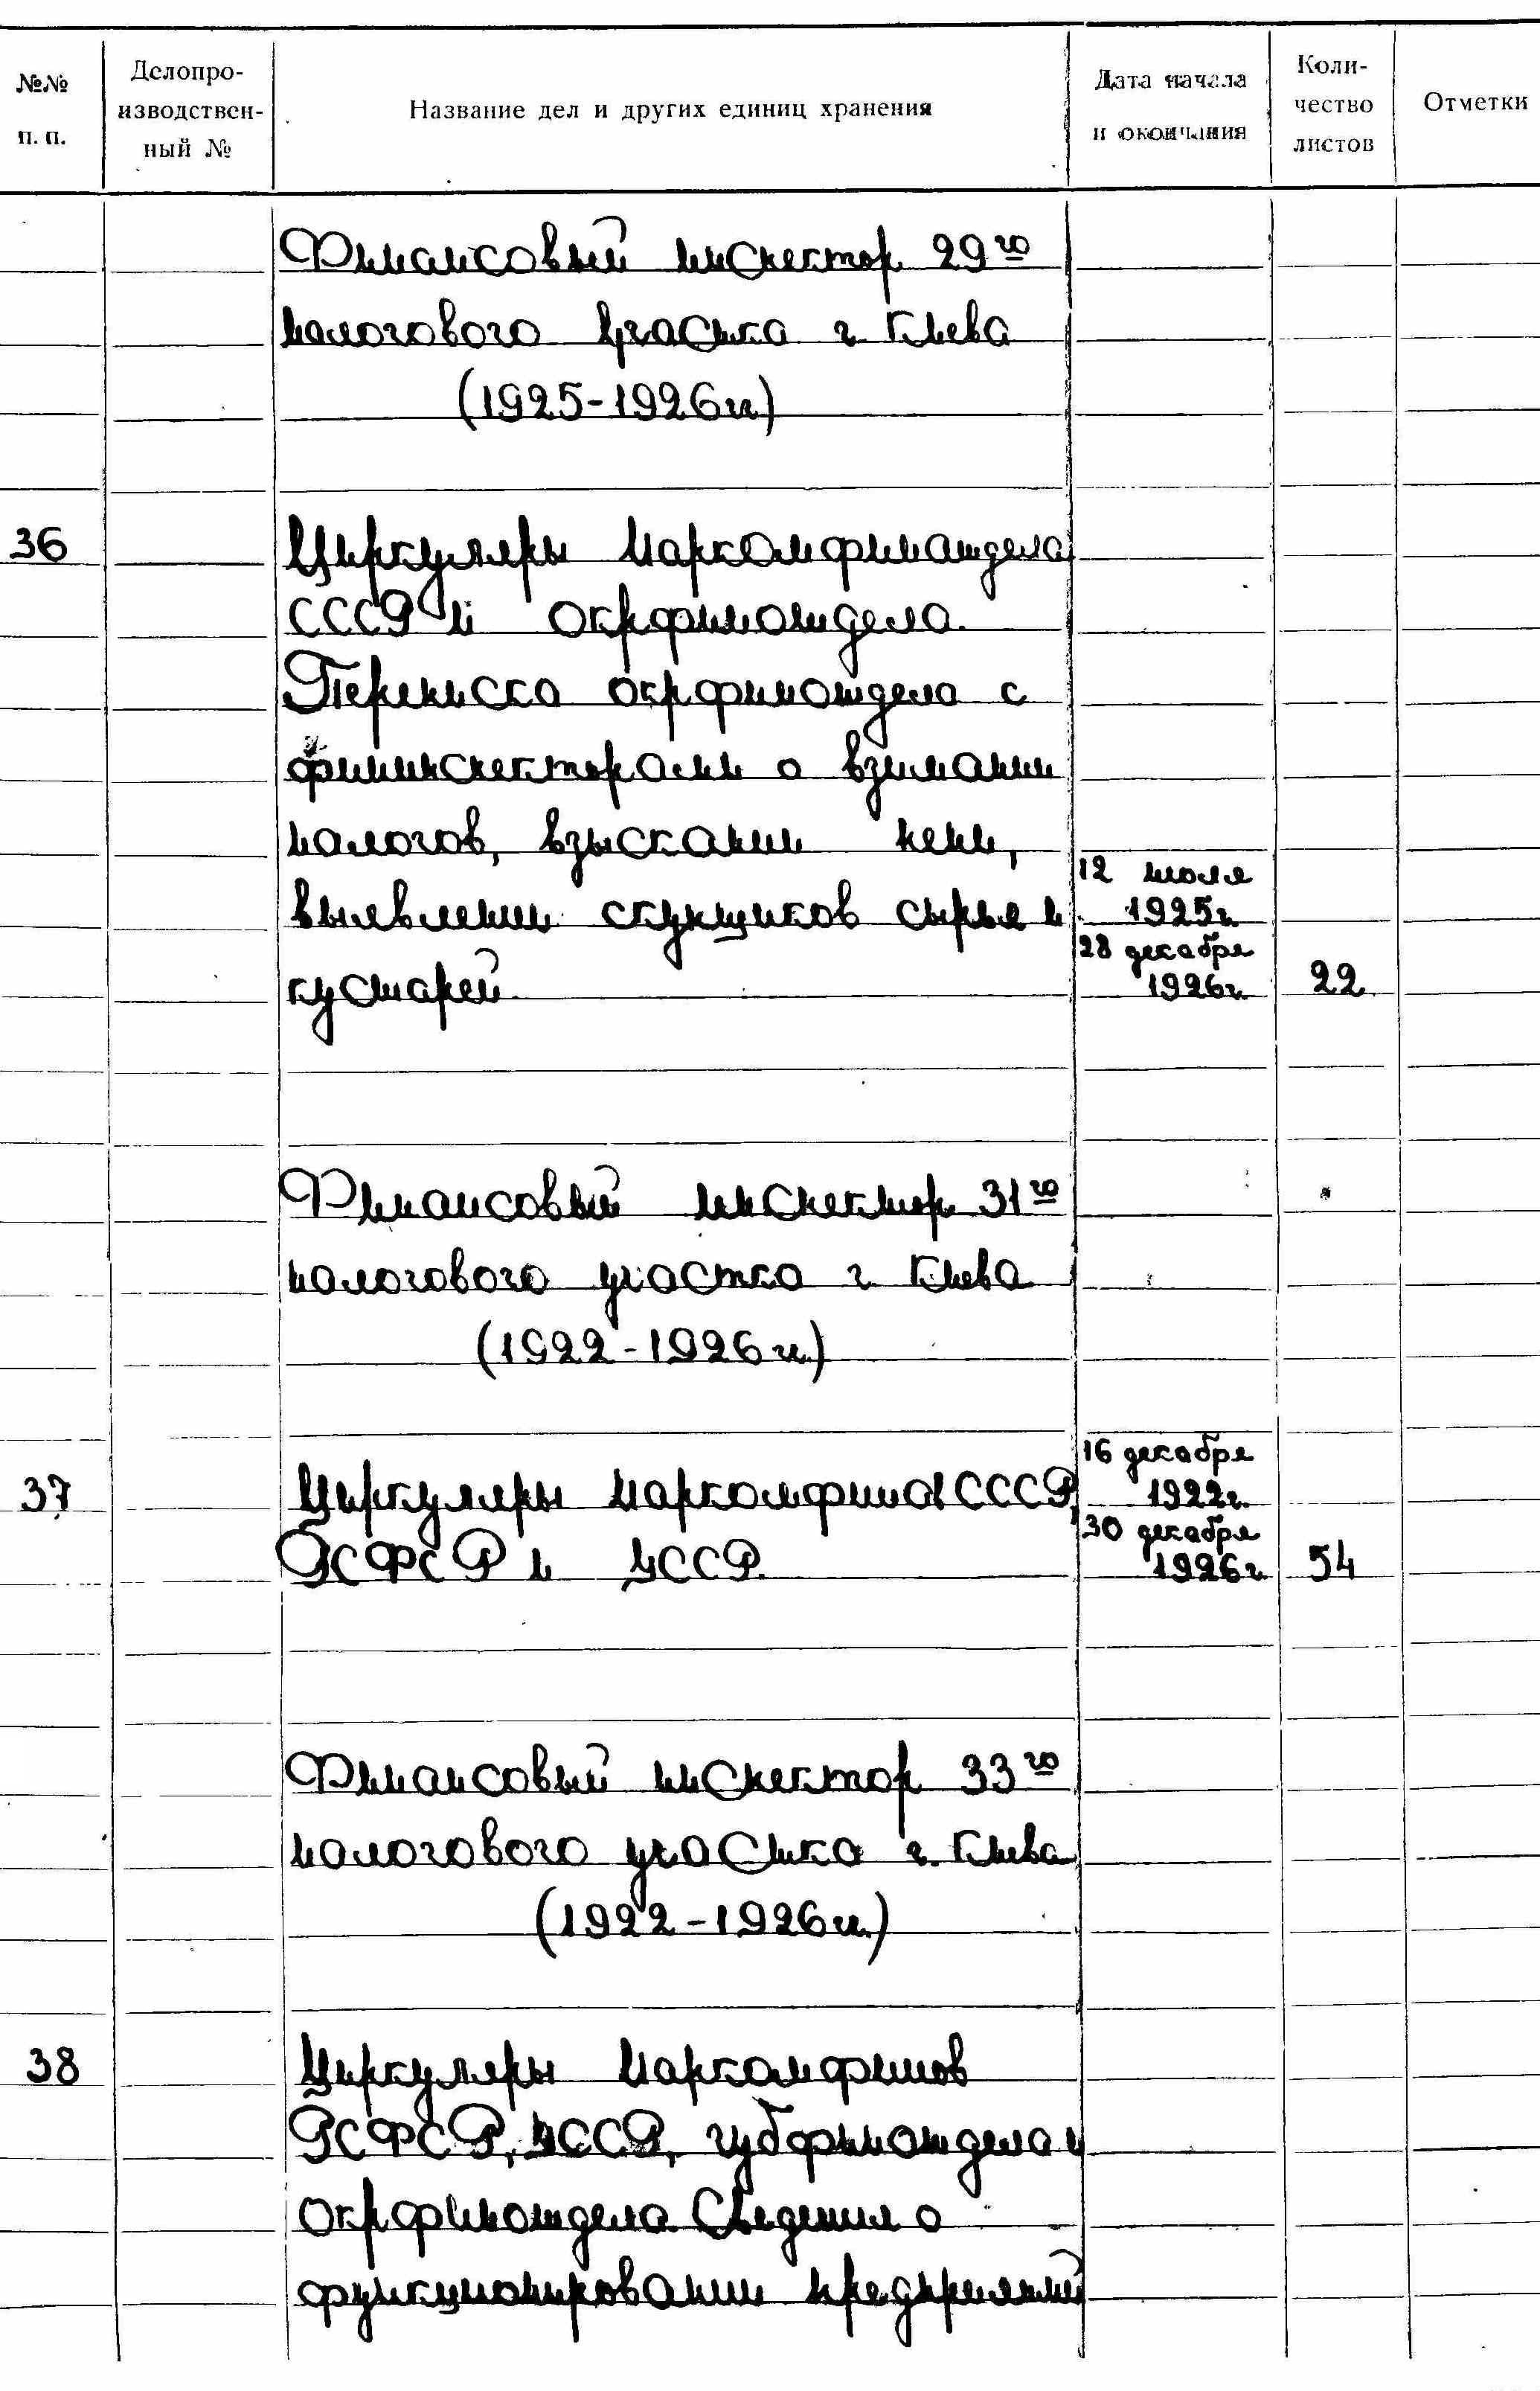 №№ п. п.
Делопро-
изводствен-
ный №
Название дел и других единиц хранения
Дата начала
и окончания
Коли-
чество
листов
Отметки
Финансовый инспектор 29го
налогового участка г. Киева
(1925-1926гг.)
36
Циркуляры Наркомфинотдела
СССР и Окрфинотдела.
Переписка окрфинотдела с
фининспекторами о взимании
налогов, взыскании пени,
12 июля
выявлении скупщиков сырья и 1925г.
28 декабря
кустарей. 1926г. 22
Финансовый инспектор 31го
налогового участка г. Киева
(1922-1926гг.)
16 декабря
37 Циркуляры Наркомфина СССР, 1922г.
30 декабря
РСФСР и УССР. 1926г. 54
Финансовый инспектор 33го
налогового участка г. Киева
(1922-1926гг.)
38 Циркуляры Наркомфинов
РСФСР, УССР, губфинотдела и
Окрфинотдела. Сведения о
функционировании предприятий